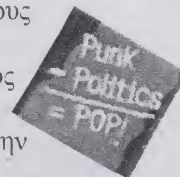 ους
ς
ην
Punk
- Politics
= POP!